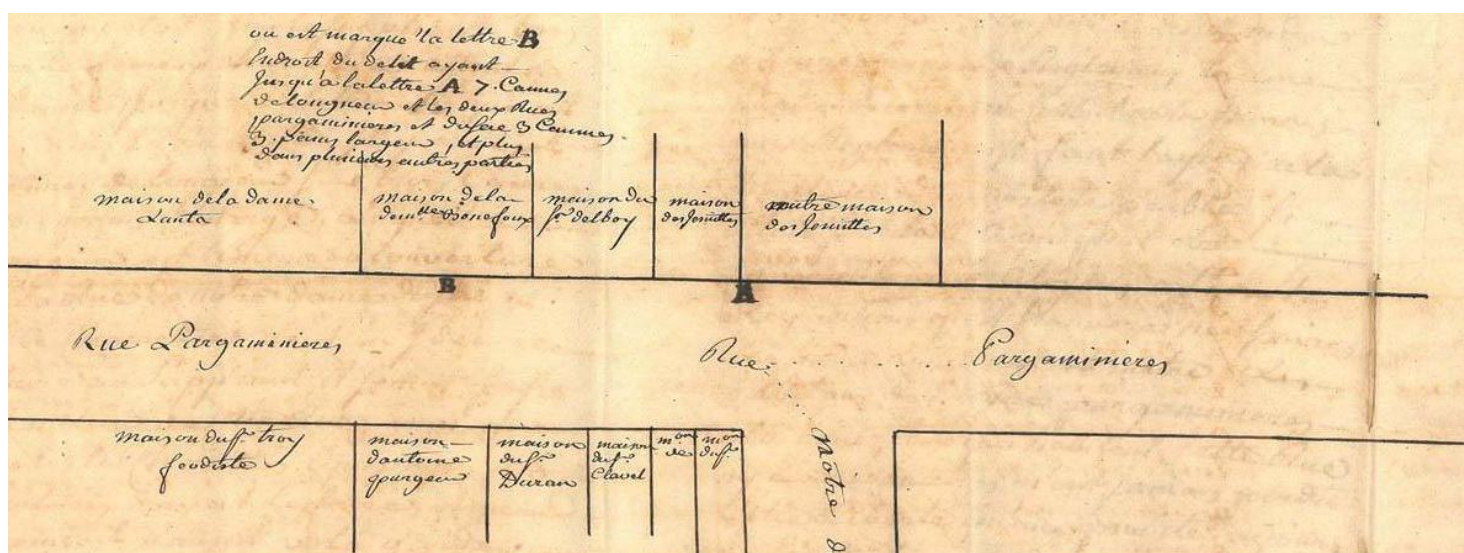 ou est marqué la lettre B
Endroit du delit ayant
Jusqu'à la lettre A 7. Cannes
de longueur et les deux Rues
pargaminieres et du 3 Cannes.
3. pams largeur, et plus
dans plusieurs autres parties
maison de la dame
Lanta
maison de la
dem.lle Bonefoux
maison du
Sr. delboy
maison
des Jesuittes
autre maison
des Jesuittes
B
A
Rue Pargaminieres
Rue . . . . . . . . . Pargaminieres
maison du Sr. troy
feodiste
maison
dantoine
maison
du Sr.
Duran
maison
du Sr.
Clavel
m.on
de
m.on
du Sr.
Notre d